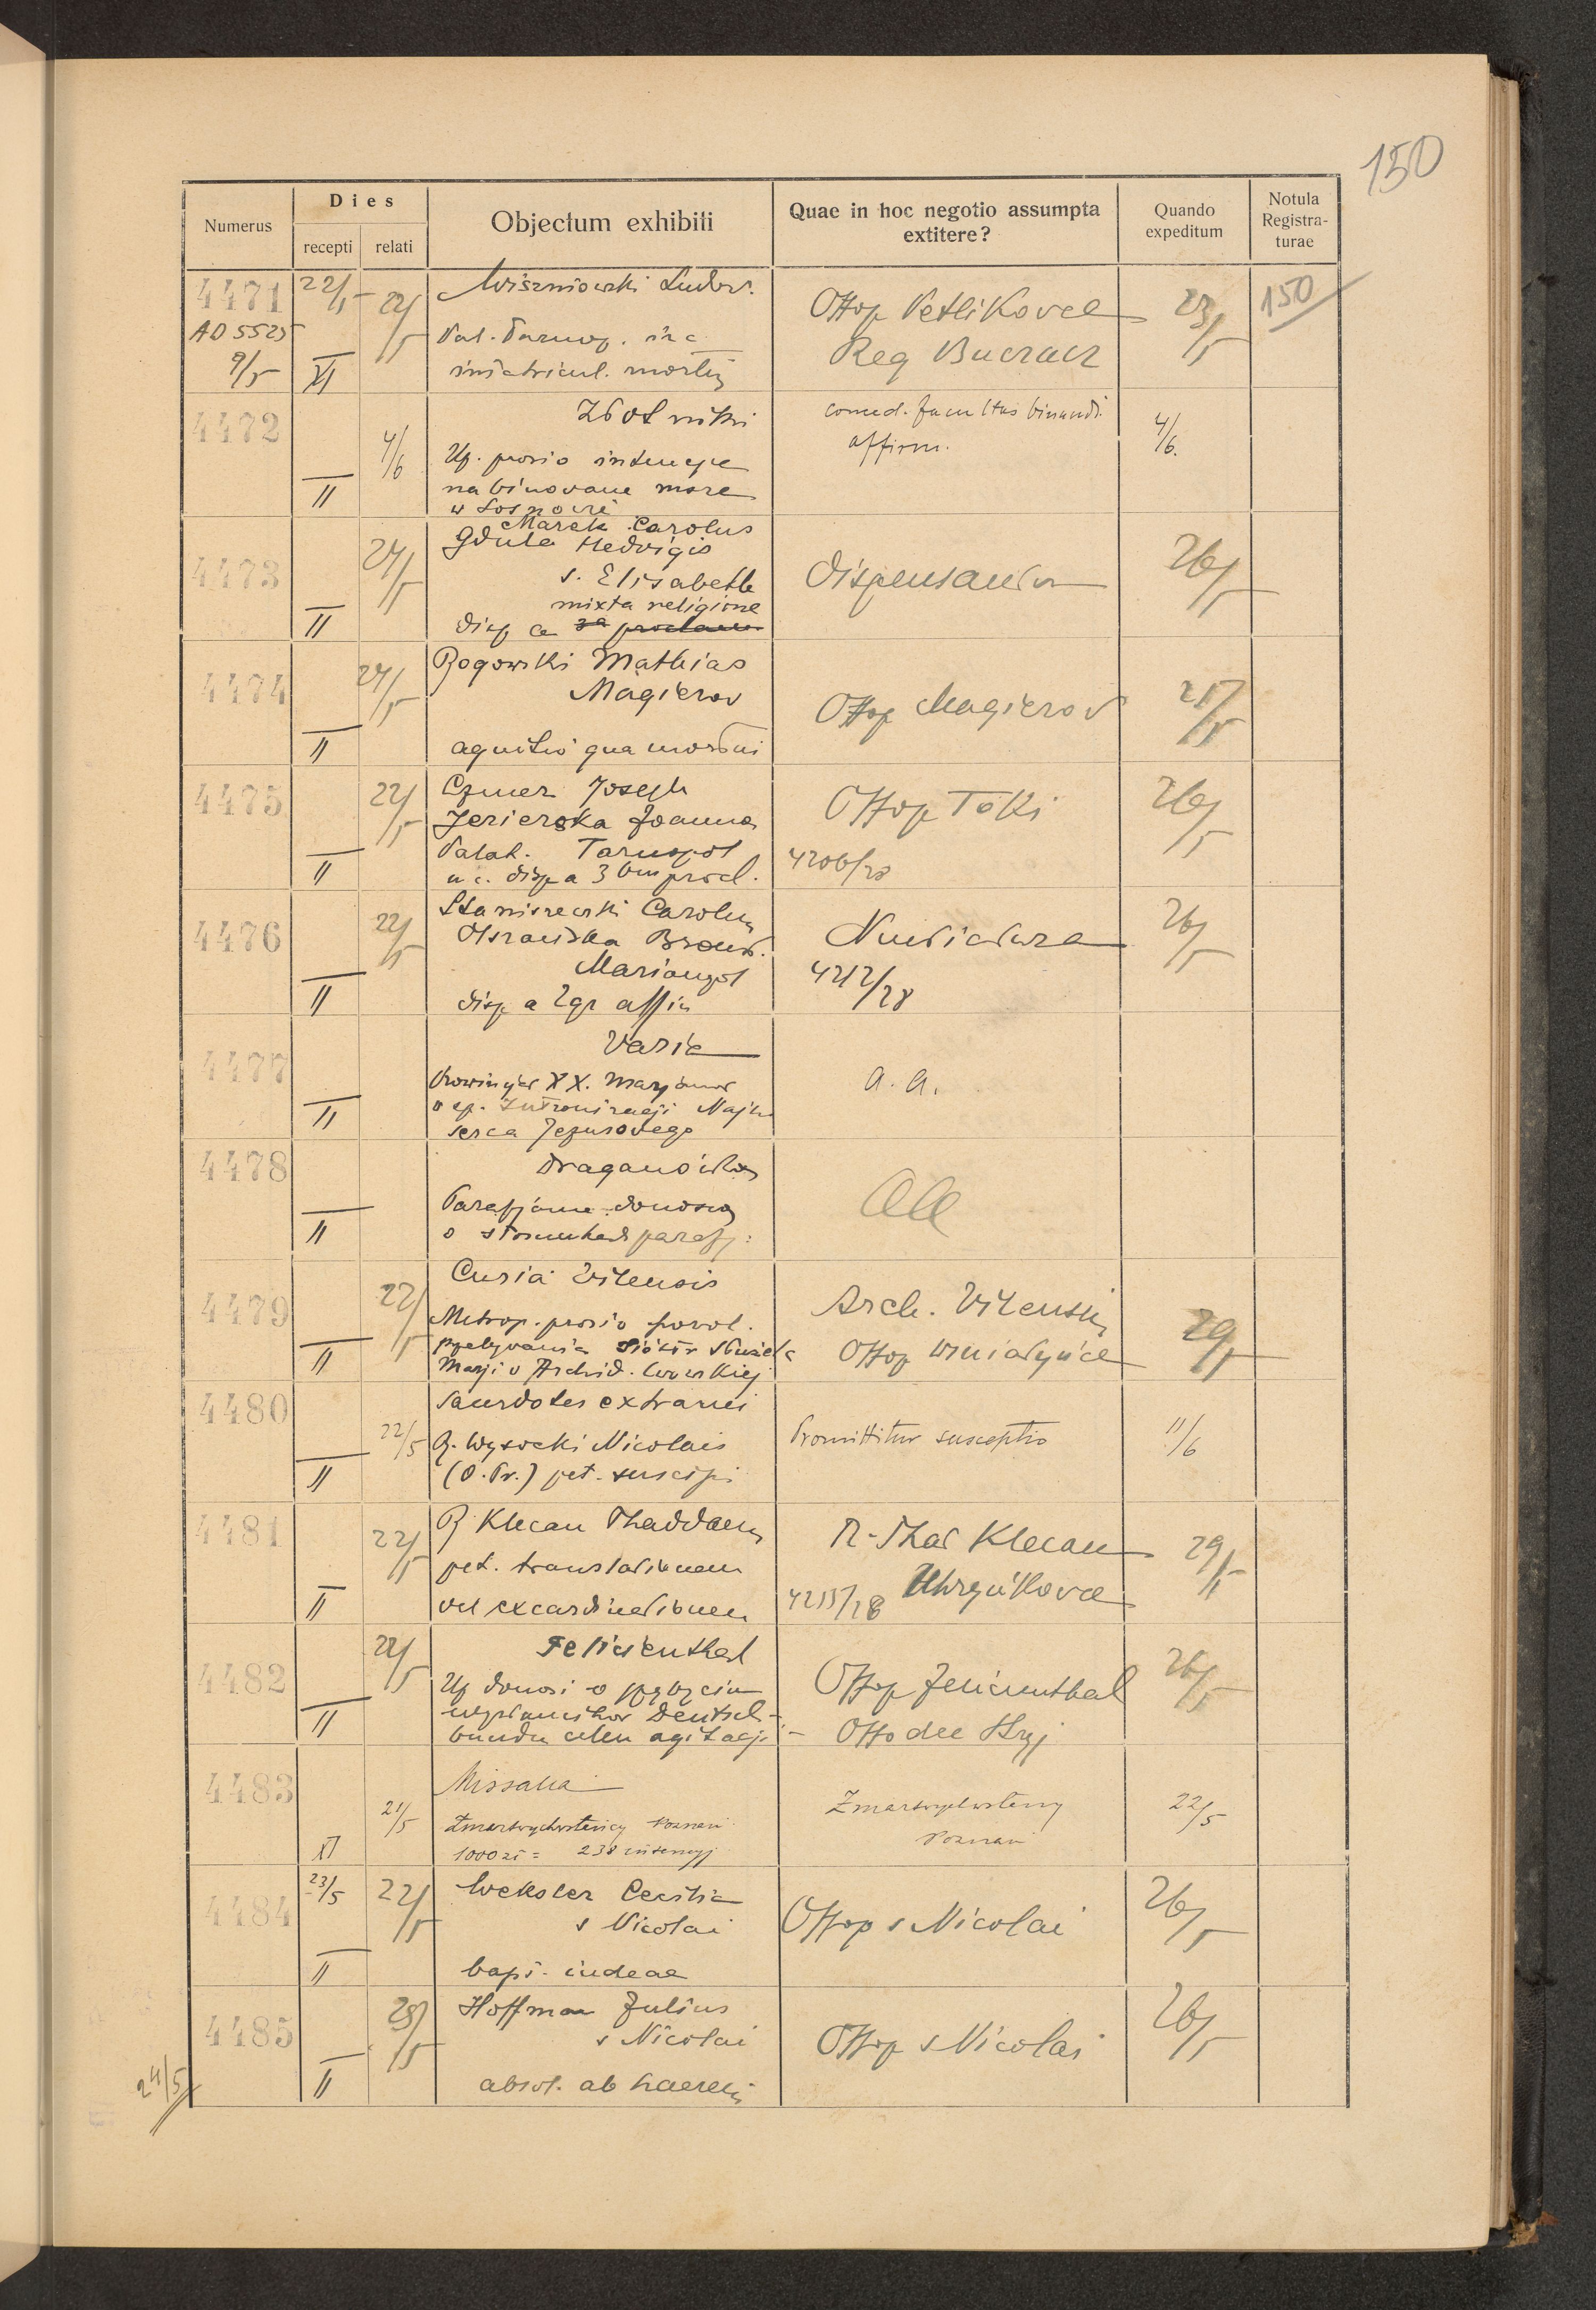 150
Numerus
Dies
recepti
relati
Objectum exhibiti
Quae in hoc negotio assumpta
extitere?
Quando
expeditum
Notula
Registra-
turae
4471
AD 5525
9/5
22/5
XI
22/5
Wiszniowski Ludov.
Pal. Tarnop. in c.
mortis
Ottop Petlikovce
Reg Buczacz
23/5
150
4472
II
4/6
Złotniki
Up. prosi o
na binowane msze
w Sosnowie
facultas binandi
affirm.
4/6.
4473
II
24/5
Marek Carolus
Gdula Hedvigis
s. Elisabeth
mixta religione
disp a
Dispensatur
26/5
4474
II
24/5
Rogowski Mathias
Magierov
agnitio qua mortui
Ottop Magierov
25/5
4475
II
22/5
Czmer Joseph
Jezierska Joanna
Palat. Tarnopol
in c. disp a 3bus procl.
Ottop Toki
4206/28
26/5
4476
II
22/5
Staniszewski Carolus
Bron.
Mariampol
disp a 2 gr affin
Nuntiatura
4212/28
26/5
4477
II
Varia
Prowincjał XX. Marjanów
o sp. Intronizacji Najśw
serca Jezusowego
a. a.
4478
II
Draganówka
Parafjanie donoszą
o stosunkach parafj:
aa
4479
II
22/5
Curia Vilensis
Metrop. prosi o pozwol.
Sióstr Służek
Marji v Archid. lwowskiej
Arch. Vilensis
Ottop
29/5
4480
II
22/5
Sacerdotes extranei
R. Wysocki Nicolaus
(O. Pr.) pet. suscipi
Promittitur susceptio
11/6
4481
II
22/5
R Klecan Thaddaeus
pet. translationem
vel excardinationem
R. Thad Klecan
4215/28 Uhryńkovce
29/5
4482
II
22/5
Felicienthal
Up donosi o
wysłanników Deutsch-
bundu celem agitacji
Ottop Felicienthal
Otto dec Stryj
26/5
4483
XI
21/5
Missalia
Zmartwychwstańcy Poznań
1000 zł = 238 intencyj
Zmartwychwstańcy
Poznań
22/5
4484
23/5
II
22/5
Weksler Cecilia
s Nicolai
bapt. iudeae
Ottop s Nicolai
26/5
4485
II
23/5
Hoffman Julius
s Nicolai
absol. ab haeresi
Ottop s Nicolai
26/5
24/5